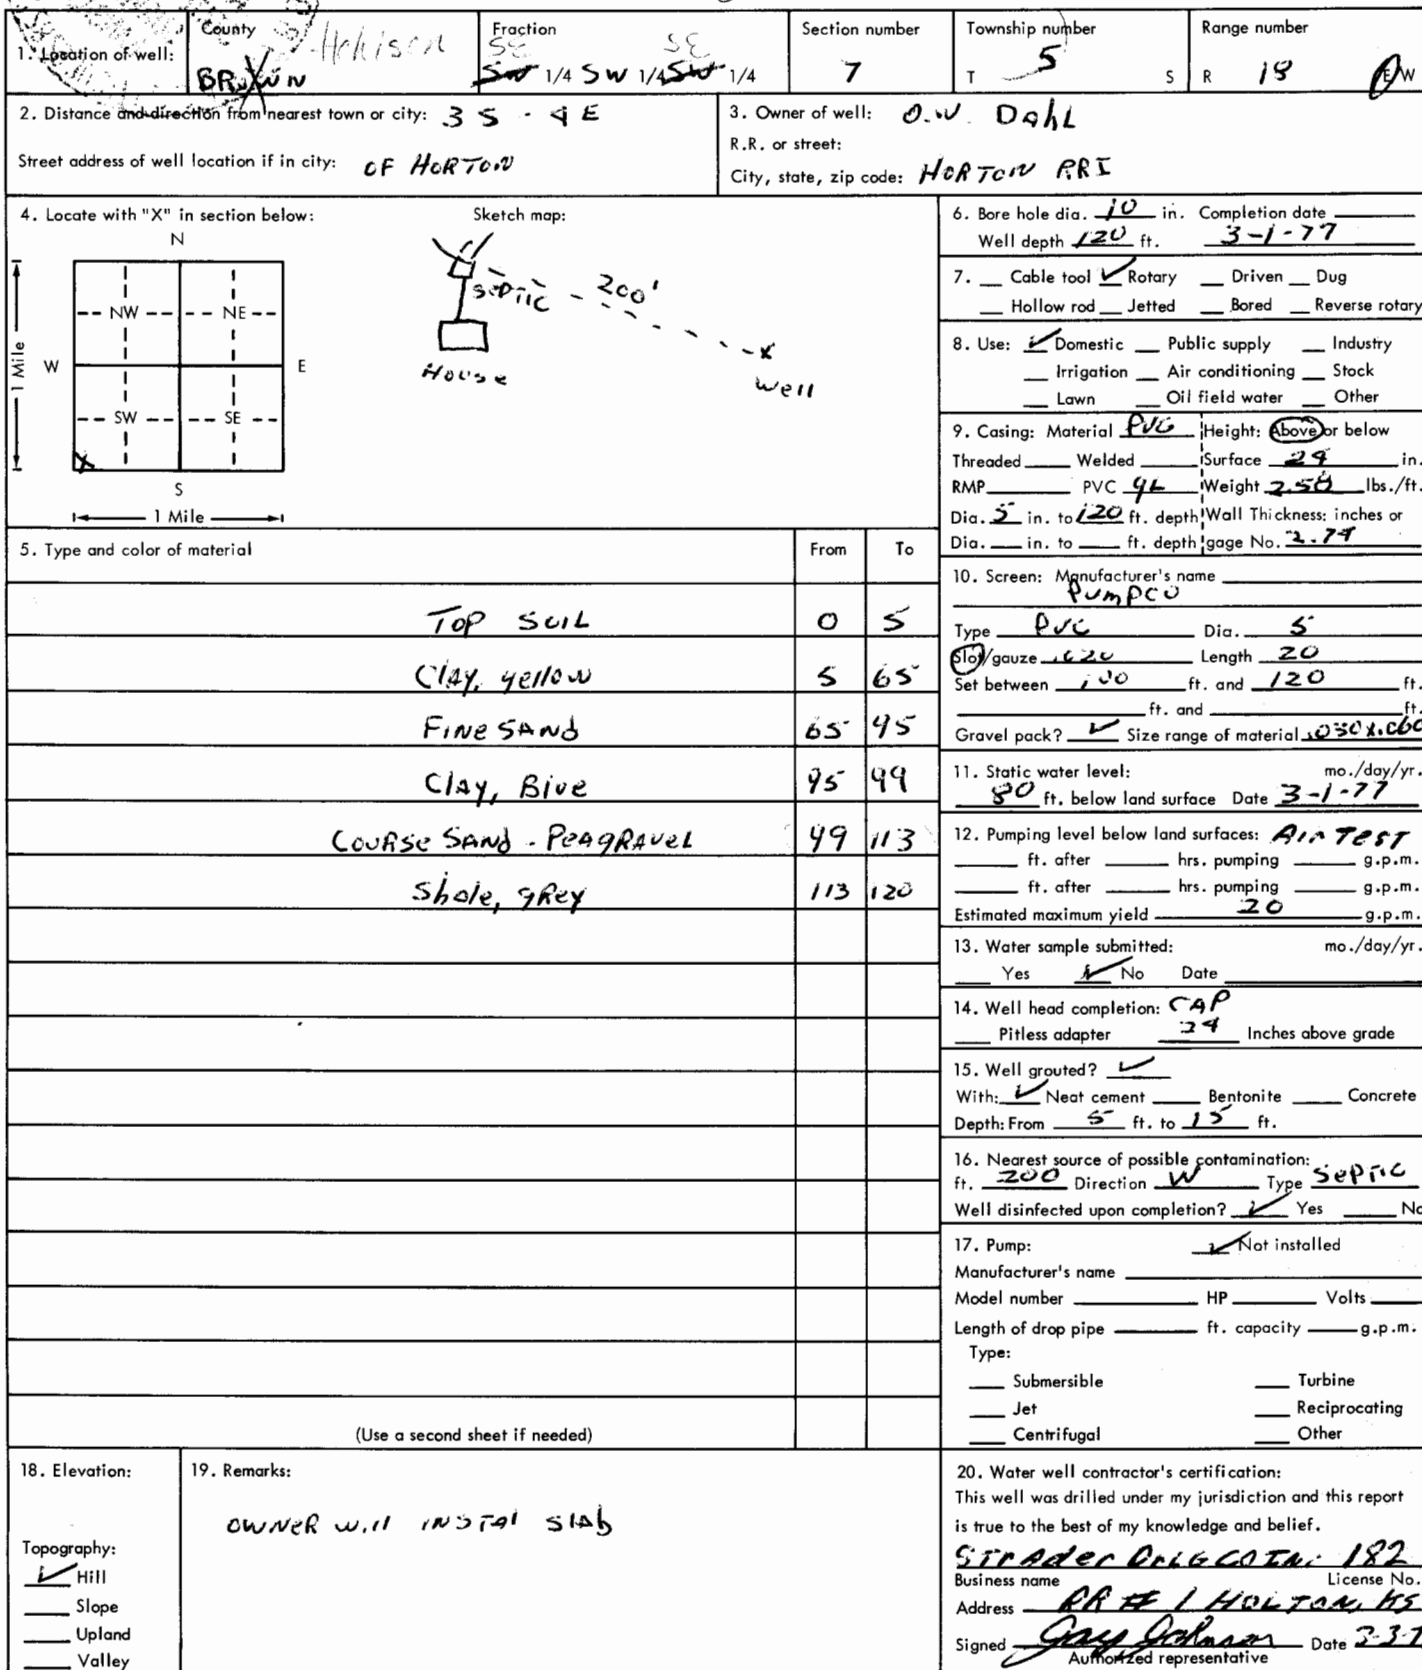 1. Location of well:
County
Atchison
BROWN
Fraction
SE SE
SW 1/4 SW 1/4 SW 1/4
Section number
7
Township number
T 5 S
Range number
R 18 E/W
2. Distance and direction from nearest town or city: 3 S - 4 E
Street address of well location if in city: OF HORTON
3. Owner of well: O.W. DAhL
R.R. or street:
City, state, zip code: HORTON RR1
4. Locate with "X" in section below:
N
NW NE
W E
SW SE
X
S
1 Mile
1 Mile
Sketch map:
SEPTIC
200'
House
x
Well
5. Type and color of material From To
TOP SOIL 0 5
Clay, yellow 5 65
FINE SAND 65 95
Clay, Blue 95 99
COURSE SAND - PEAGRAVEL 99 113
Shale, gRey 113 120
(Use a second sheet if needed)
6. Bore hole dia. 10 in. Completion date
Well depth 120 ft. 3-1-77
7. Cable tool ✓ Rotary Driven Dug
Hollow rod Jetted Bored Reverse rotary
8. Use: ✓ Domestic Public supply Industry
Irrigation Air conditioning Stock
Lawn Oil field water Other
9. Casing: Material PVC Height: Above or below
Threaded Welded Surface 24 in.
RMP PVC Weight 2.50 lbs./ft.
Dia. 5 in. to 120 ft. depth Wall Thickness: inches or
Dia. in. to ft. depth gage No.
10. Screen: Manufacturer's name
PUMPCO
Type PVC Dia. 5
Slot/gauze .020 Length 20
Set between 100 ft. and 120 ft.
ft. and ft.
Gravel pack? ✓ Size range of material .030X.060
11. Static water level: mo./day/yr.
80 ft. below land surface Date 3-1-77
12. Pumping level below land surfaces: Air TEST
ft. after hrs. pumping g.p.m.
ft. after hrs. pumping g.p.m.
Estimated maximum yield 20 g.p.m.
13. Water sample submitted: mo./day/yr.
Yes ✓ No Date
14. Well head completion: CAP
Pitless adapter 24 Inches above grade
15. Well grouted? ✓
With: ✓ Neat cement Bentonite Concrete
Depth: From 5 ft. to 15 ft.
16. Nearest source of possible contamination:
ft. 200 Direction W Type SEPTIC
Well disinfected upon completion? ✓ Yes No
17. Pump: ✓ Not installed
Manufacturer's name
Model number HP Volts
Length of drop pipe ft. capacity g.p.m.
Type:
Submersible Turbine
Jet Reciprocating
Centrifugal Other
18. Elevation:
Topography:
✓ Hill
Slope
Upland
Valley
19. Remarks:
OWNER will INSTAl SlAb
20. Water well contractor's certification:
This well was drilled under my jurisdiction and this report
is true to the best of my knowledge and belief.
STRAder DRLG CO INC 182
Business name License No.
Address RR # 1 HOLTON, KS
Signed Gay Johnson Date 3-3-7
Authorized representative